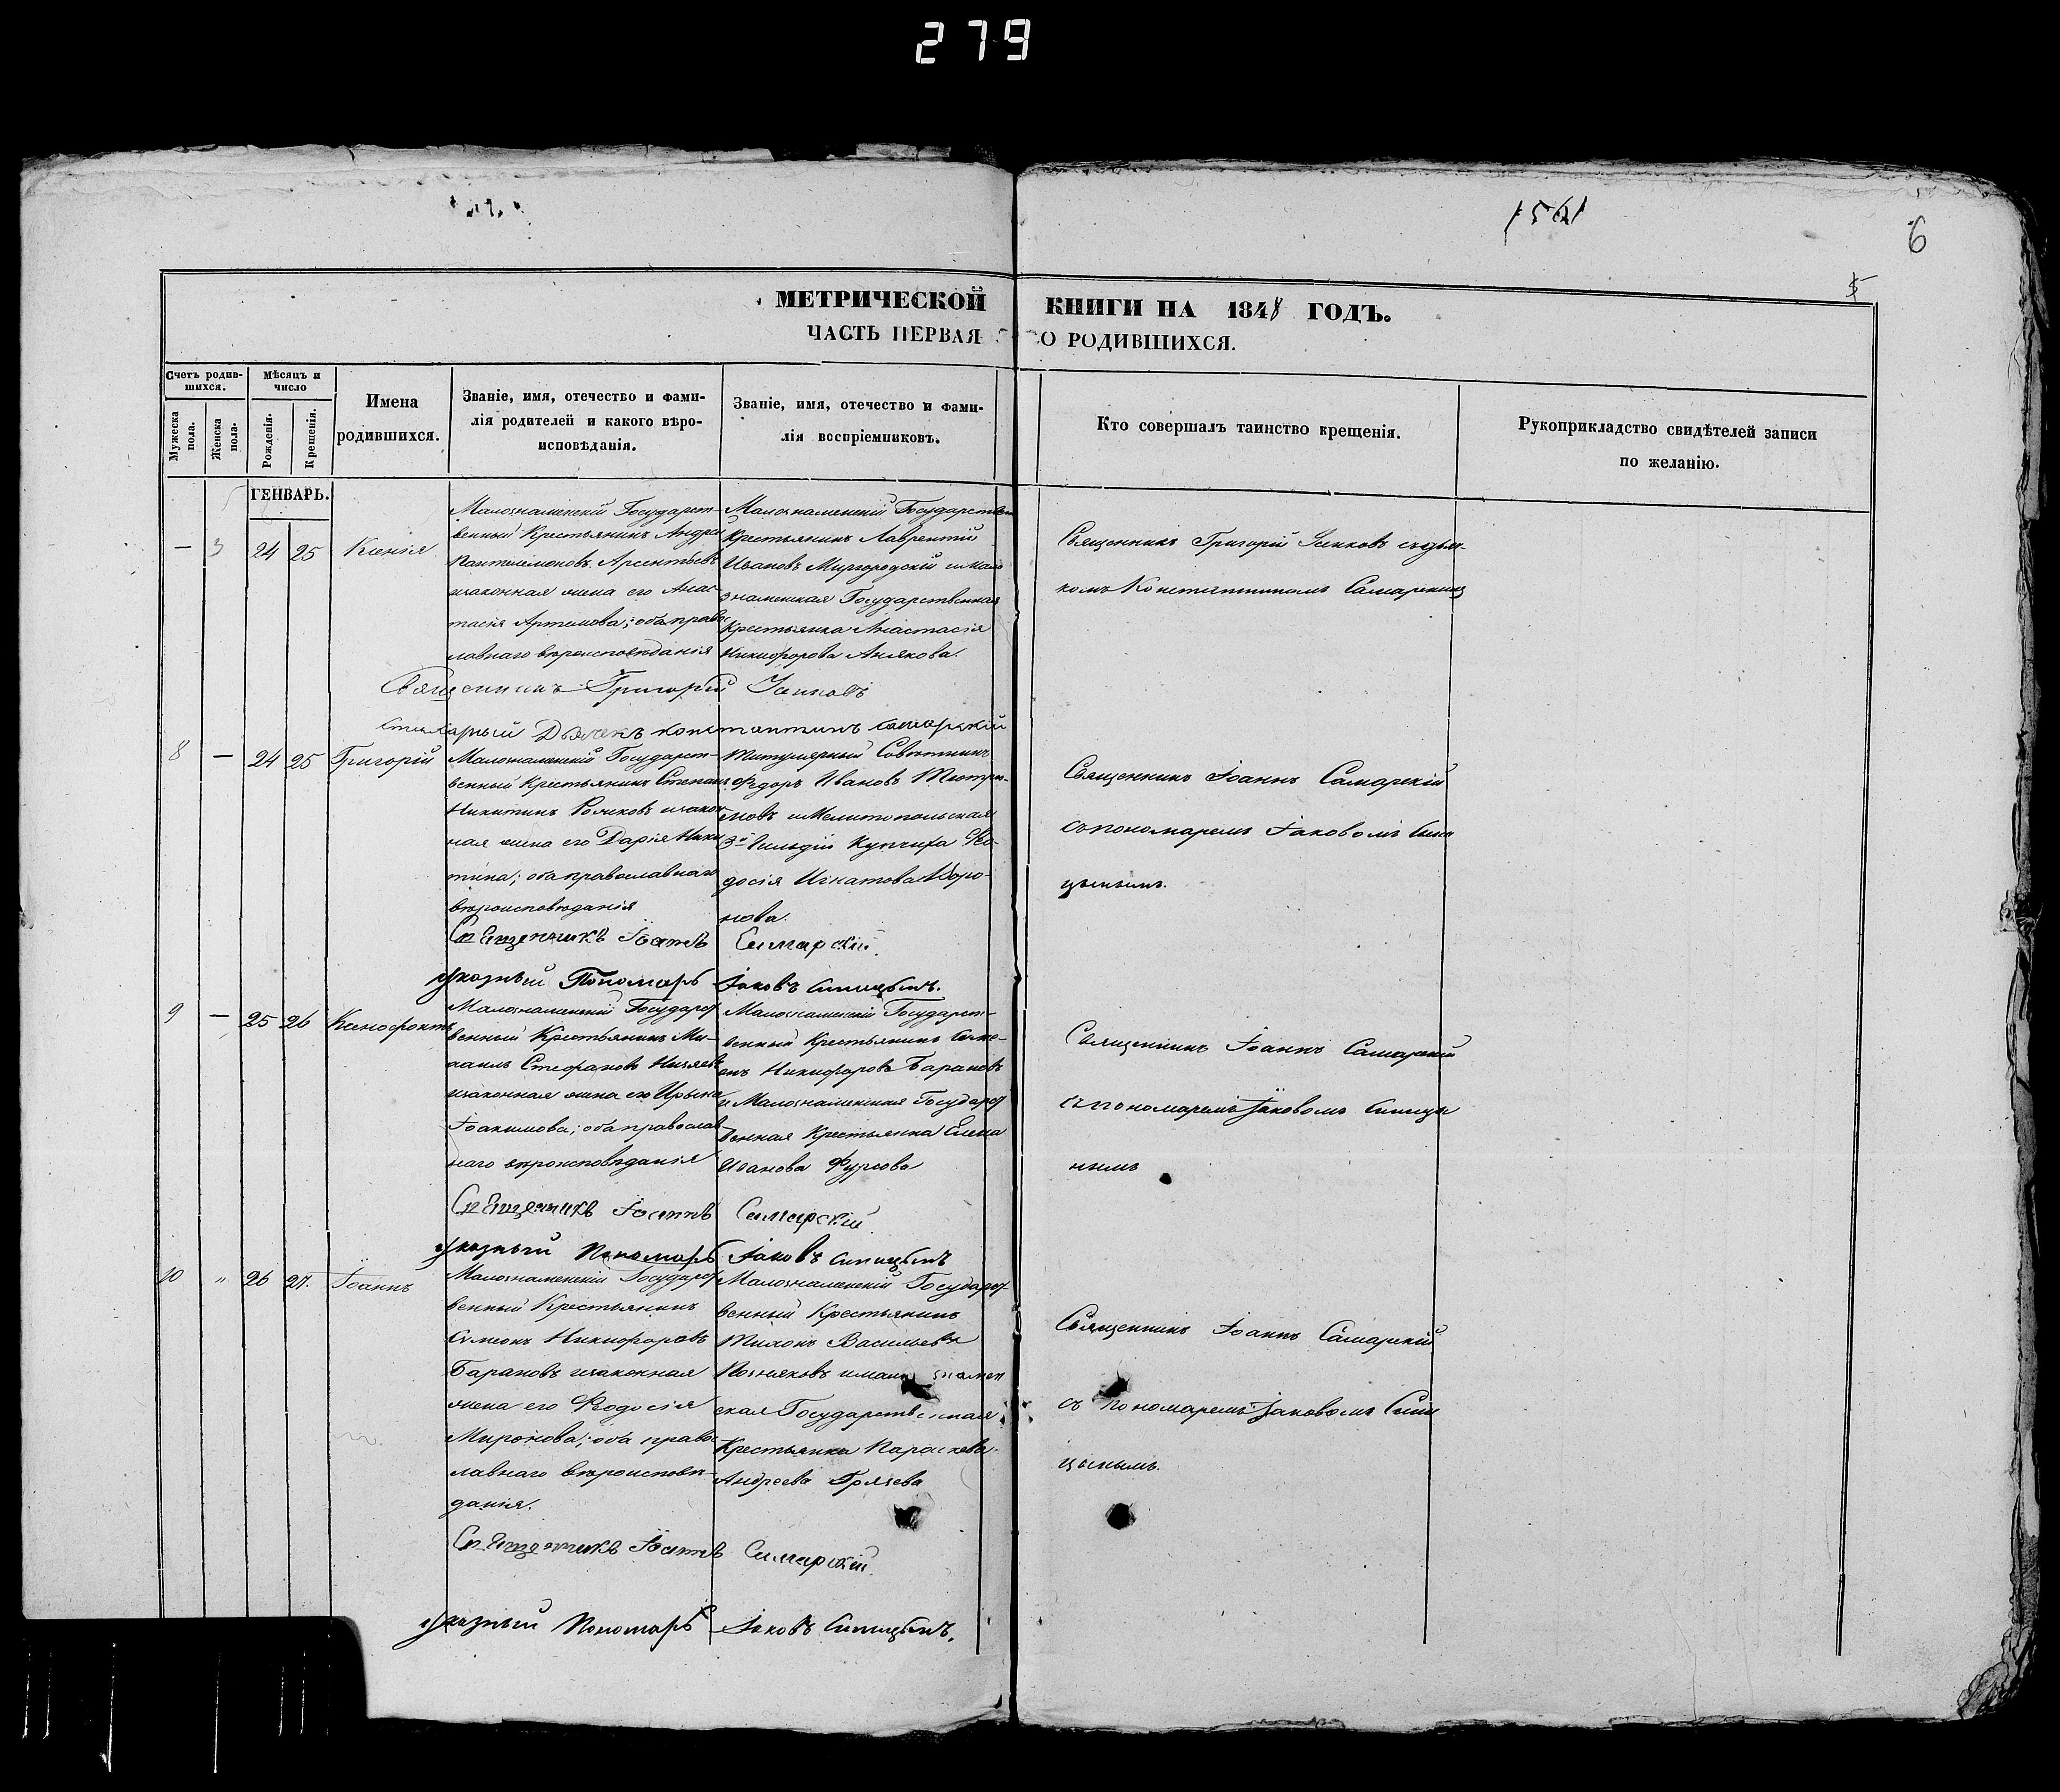 279
1561
6
5
МЕТРИЧЕСКОЙ КНИГИ НА 1848 ГОДЪ.
ЧАСТЬ ПЕРВАЯ О РОДИВШИХСЯ.
Счетъ родив-
шихся.
Мужеска пола.
Женска пола.
Мѣсяцъ и
число
Рожденія.
Крещенія.
Имена
родившихся.
Званіе, имя, отечество и фами-
лія родителей и какого вѣро-
исповѣданія.
Званіе, имя, отечество и фами-
лія воспріемниковъ.
Кто совершалъ таинство крещенія.
Рукоприкладство свидѣтелей записи
по желанію.
ГЕНВАРЬ.
— 3 24 25 Ксенія
Малознаменскій Государст-
венный Крестьянинъ Андрей
Пантелемоновъ Арсентьевъ
изаконная жена его Анас-
тасія Артемова; оба право
лавнаго вѣроисповѣданія
Малознаменскій Государствен
Крестьянинъ Лаврентій
Ивановъ Миргородскій и Мало
знаменская Государственная
Крестьянка Анастасія
Никифорова
Священникъ Григорій съ дья-
комъ Константиномъ Самарским
Священникъ Григорій
Дьячекъ Константинъ Самарскій
8 — 24 25 Григорій
Малознаменскій Государст-
венный Крестьянинъ Степанъ
Никитинъ изакон
ная жена его Дарія Ники
тина; оба православнаго
вѣроисповѣданія
Титулярный Совѣтникъ
Федоръ Ивановъ
мовъ и Мелитопольская
3й Гильдіи Купчиха Ѳео-
досія Игнатова
нова.
Священникъ Іоаннъ Самарскій
съ пономаремъ Іаковомъ Сини
цынымъ.
Священникъ Іоаннъ Самарскій
указный Пономарь Іаковъ Синицынъ.
9 — 25 26 Ксенофонтъ
Малознаменскій Государст
венный Крестьянинъ Ми-
хаилъ Стефановъ
изаконная жена его Ирина
Іоакимова; оба православ
наго вѣроисповѣданія
Малознаменскій Государст-
венный Крестьянинъ Симе-
онъ Никифоровъ Барановъ
и Малознаменская Государст
венная Крестьянка Елена
Иванова Фурсова
Священникъ Іоаннъ Самарскій
съ пономаремъ Іаковомъ Синицы
нымъ
Священникъ Іоаннъ Самарскій
указный Пономарь Іаковъ Синицынъ
10 „ 26 27. Іоаннъ
Малознаменскій Государст
венный Крестьянинъ
Симеонъ Никифоровъ
Барановъ изаконная
жена его Ѳеодосія
Миронова; оба право
лавнаго вѣроисповѣ-
данія.
Малознаменскій Государст
венный Крестьянинъ
Тихонъ Васильевъ
Позняковъ и мало знамен
ская Государственная
Крестьянка Параскева
Андреева
Священникъ Іоаннъ Самарскій
съ пономаремъ Іаковомъ Сини
цынымъ.
Священникъ Іоаннъ Самарскій
указный Пономарь Іаковъ Синицынъ.